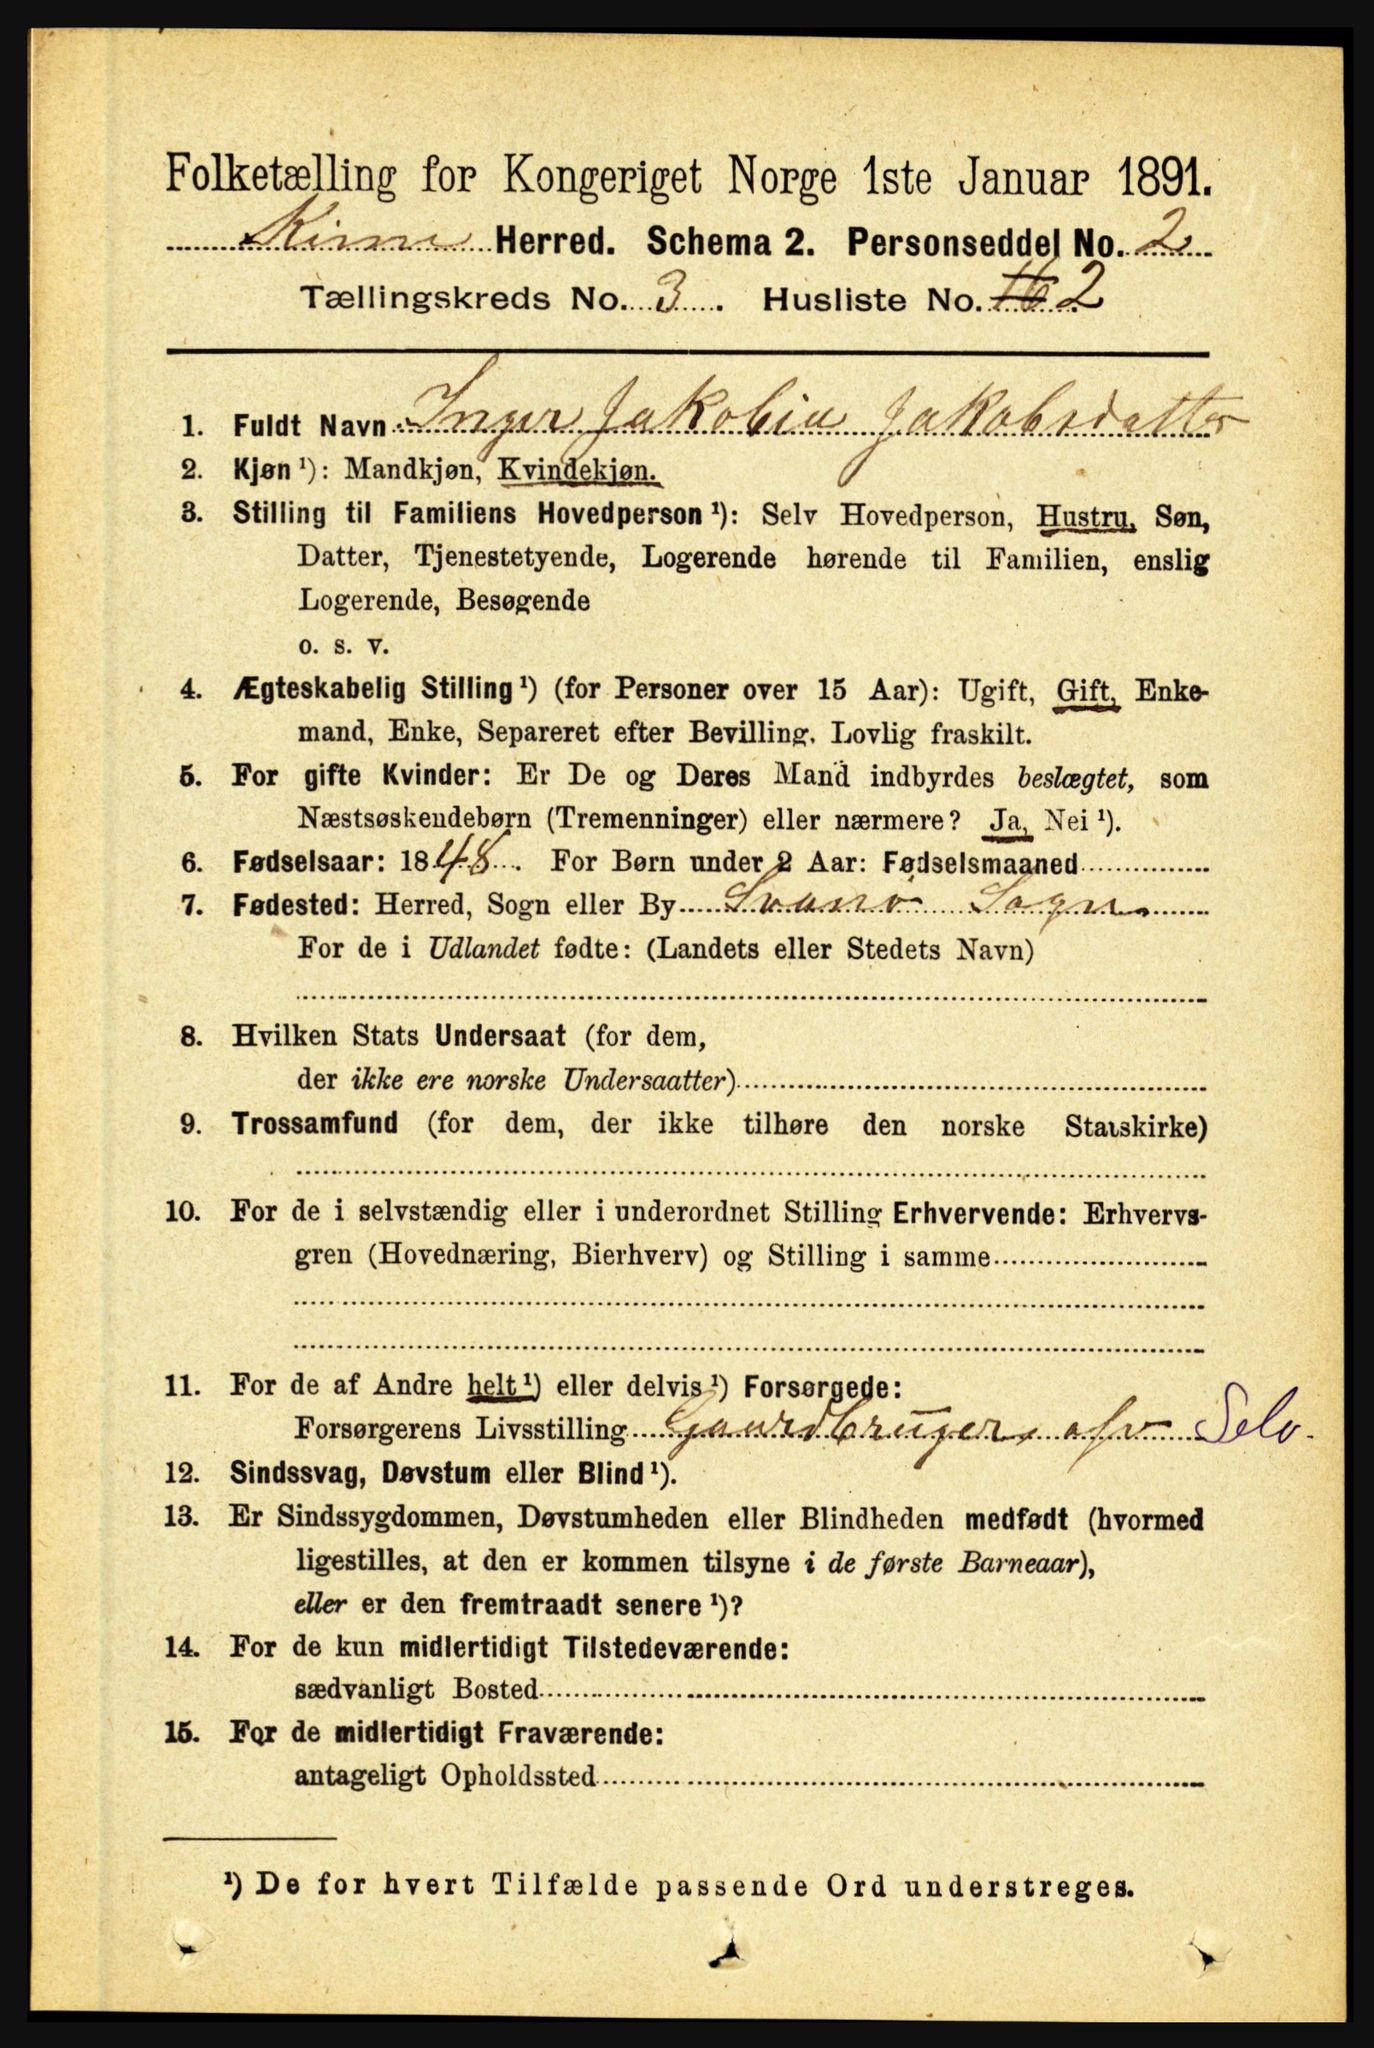 Folketælling for Kongeriget Norge 1ste Januar 1891.
Kinn Herred. Schema 2. Personseddel No. 2
Tællingskreds No. 3. Husliste No. 16 2
1. Fuldt Navn Inger Jakobia Jakobsdatter
2. Kjøn ¹): Mandkjøn, Kvindekjøn.
3. Stilling til Familiens Hovedperson ¹): Selv Hovedperson, Hustru, Søn,
Datter, Tjenestetyende, Logerende hørende til Familien, enslig
Logerende, Besøgende
o. s. v.
4. Ægteskabelig Stilling ¹) (for Personer over 15 Aar): Ugift, Gift, Enke-
mand, Enke, Separeret efter Bevilling. Lovlig fraskilt.
5. For gifte Kvinder: Er De og Deres Mand indbyrdes beslægtet, som
Næstsøskendebørn (Tremenninger) eller nærmere? Ja, Nei ¹).
6. Fødselsaar: 1848. For Børn under 2 Aar: Fødselsmaaned
7. Fødested: Herred, Sogn eller By Svanø Sogn
For de i Udlandet fødte: (Landets eller Stedets Navn)
8. Hvilken Stats Undersaat (for dem,
der ikke ere norske Undersaatter)
9. Trossamfund (for dem, der ikke tilhøre den norske Statskirke)
10. For de i selvstændig eller i underordnet Stilling Erhvervende: Erhvervs-
gren (Hovednæring, Bierhverv) og Stilling i samme
11. For de af Andre helt ¹) eller delvis ¹) Forsørgede:
Forsørgerens Livsstilling Gaardbruger, Selv.
12. Sindssvag, Døvstum eller Blind ¹).
13. Er Sindssygdommen, Døvstumheden eller Blindheden medfødt (hvormed
ligestilles, at den er kommen tilsyne i de første Barneaar),
eller er den fremtraadt senere ¹)?
14. For de kun midlertidigt Tilstedeværende:
sædvanligt Bosted
15. For de midlertidigt Fraværende:
antageligt Opholdssted
¹) De for hvert Tilfælde passende Ord understreges.